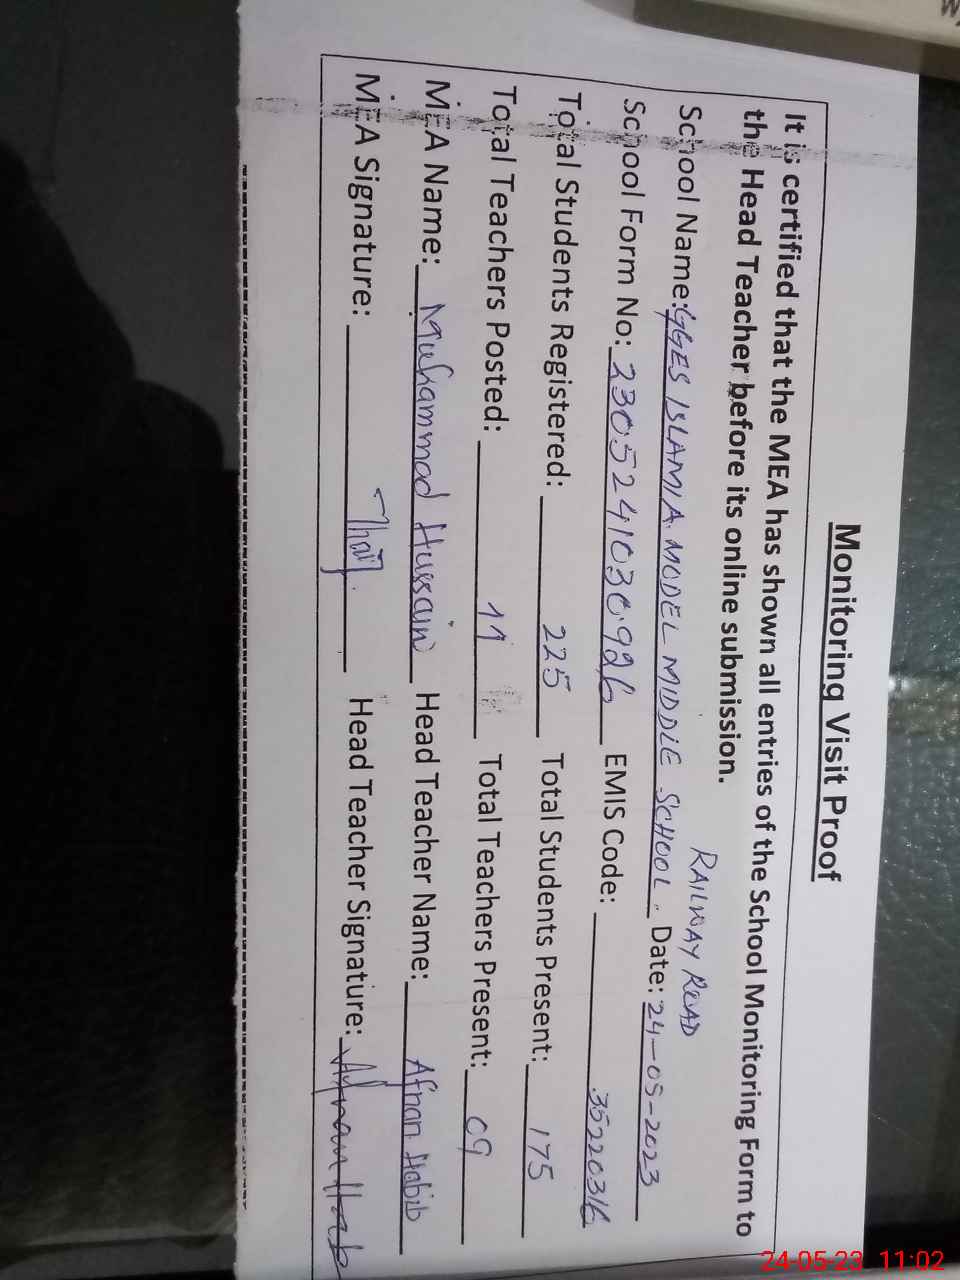 Monitoring Visit Proof
It is certified that the MEA has shown all entries of the School Monitoring Form to
the Head Teacher before its online submission.
RAILWAY ROAD
School Name: GGES ISLAMIA MODEL MIDDLE SCHOOL. Date: 24-05-2023
School Form No: 2305241030926 EMIS Code: 35220316
Total Students Registered: 225 Total Students Present: 175
Total Teachers Posted: 11 Total Teachers Present: 09
MEA Name: Muhammad Hussain Head Teacher Name: Afnan Habib
MEA Signature: Head Teacher Signature: Afnan Hab
24-05-23 11:02